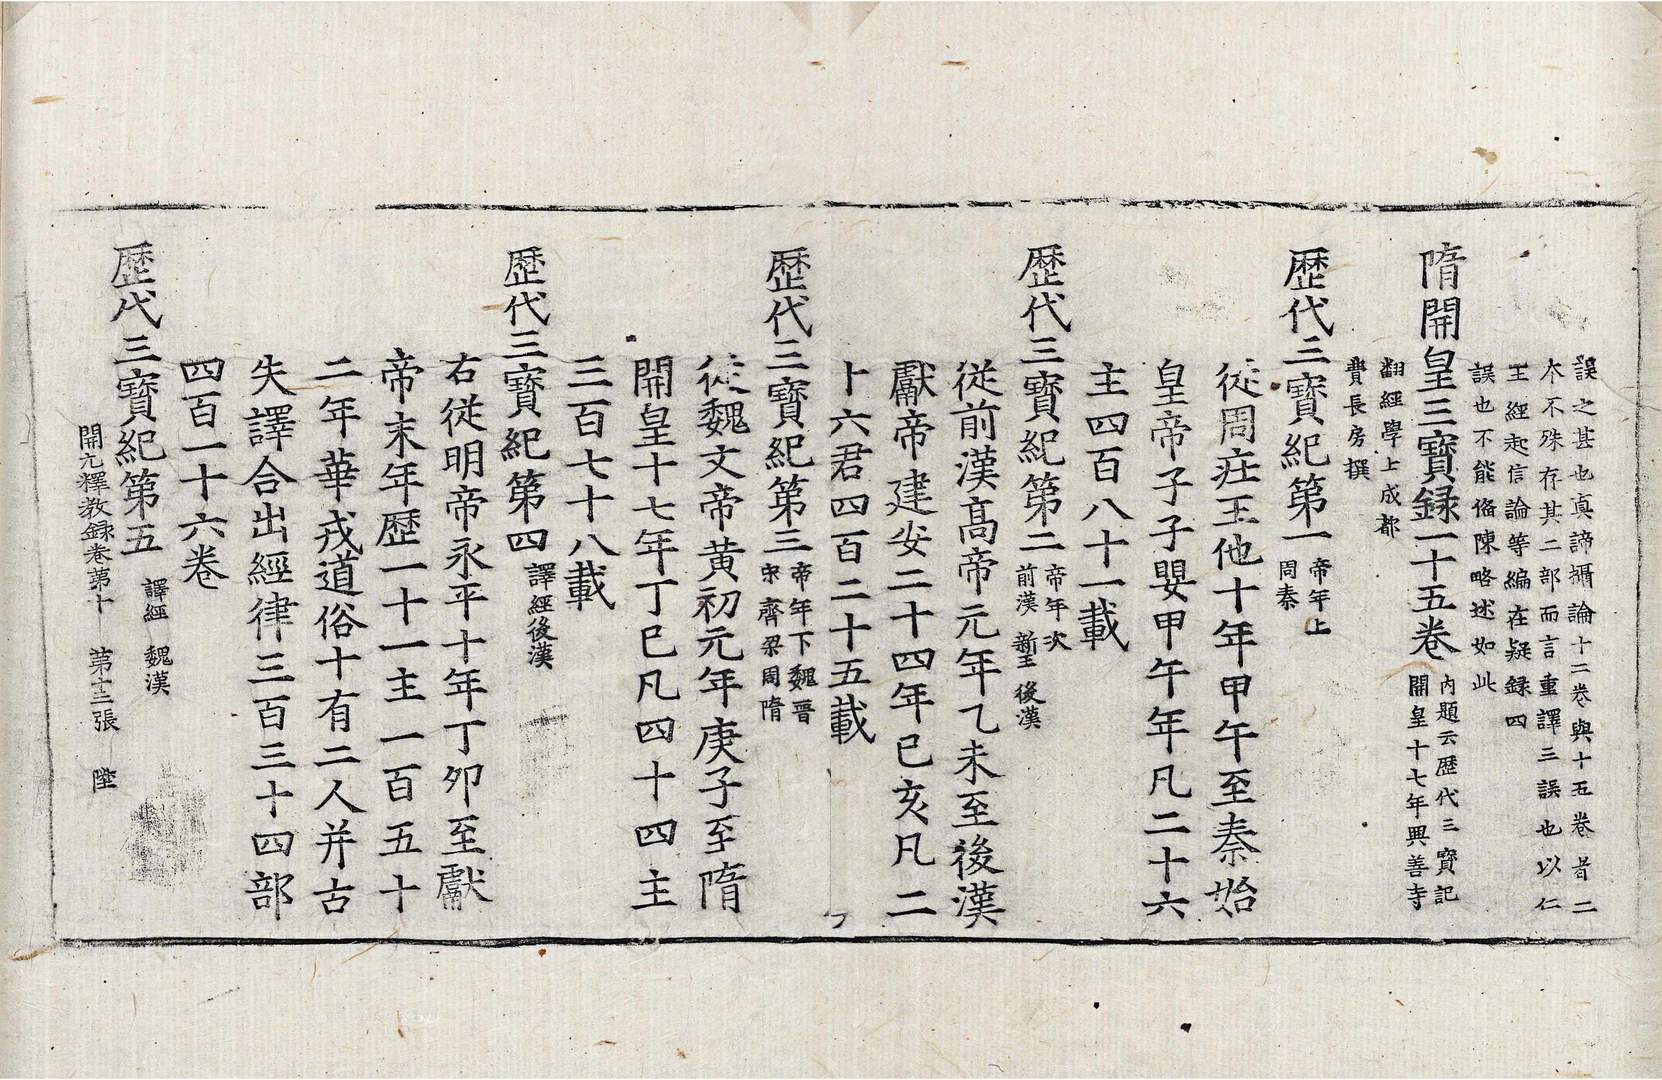 誤之甚也真諦攝論十二卷與十五卷者二
本不殊存其二部而言重譯三誤也以仁
王經起信論等編在疑錄四
誤也不能備陳略述如此
隋開皇三寶錄一十五卷
內題云歷代三寶記
開皇十七年興善寺
翻經學士成都
費長房撰
歷代三寶紀第一
帝年上
周秦
從周庄王他十年甲午至秦始
皇帝子子嬰甲午年凡二十六
主四百八十一載
歷代三寶紀第二
帝年次
前漢 新王 後漢
從前漢高帝元年乙未至後漢
獻帝建安二十四年己亥凡二
十六君四百二十五載
歷代三寶紀第三
帝年下魏晉
宋齊梁周隋
從魏文帝黃初元年庚子至隋
開皇十七年丁巳凡四十四主
三百七十八載
歷代三寶紀第四
譯經後漢
右從明帝永平十年丁卯至獻
帝末年歷一十一主一百五十
二年華戎道俗十有二人并古
失譯合出經律三百三十四部
四百一十六卷
歷代三寶紀第五
譯經 魏漢
開元釋教錄卷第十 第十三張 陞